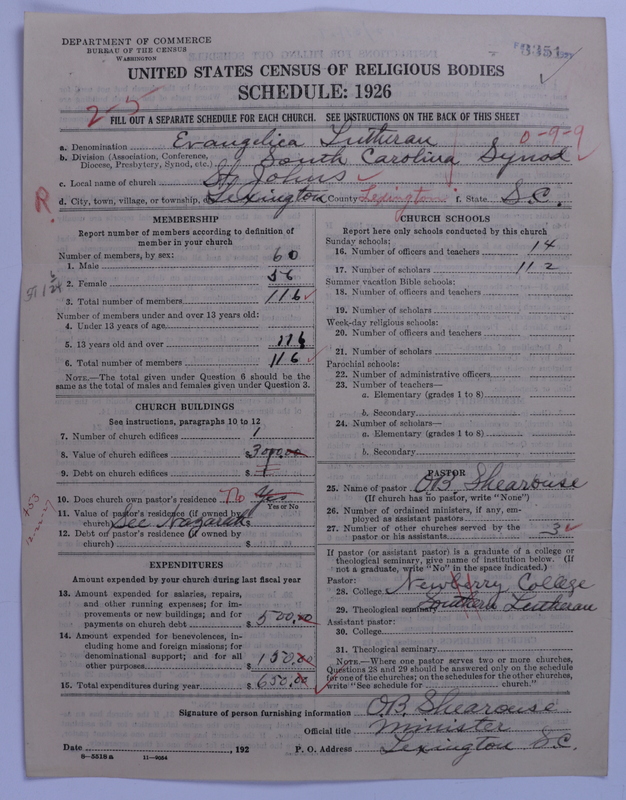 DEPARTMENT OF COMMERCE
BUREAU OF THE CENSUS
WASHINGTON
UNITED STATES CENSUS OF RELIGIOUS BODIES
SCHEDULE: 1926
2-5
FILL OUT A SEPARATE SCHEDULE FOR EACH CHURCH. SEE INSTRUCTIONS ON THE BACK OF THIS SHEET
a. Denomination Evangelica Lutheran 0-9-9
b. Division (Association, Conference, Diocese, Presbytery, Synod, etc.) South Carolina Synod
c. Local name of church St Johns
d. City, town, village, or township, Lexington County Lexington f. State S.C.
R.
MEMBERSHIP
Report number of members according to definition of
member in your church
Number of members, by sex:
1. Male 60
2. Female 56
3. Total number of members 116
Number of members under and over 13 years old:
4. Under 13 years of age
5. 13 years old and over 116
6. Total number of members 116
NOTE.—The total given under Question 6 should be the
same as the total of males and females given under Question 3.
CHURCH BUILDINGS
See instructions, paragraphs 10 to 12
7. Number of church edifices 1
8. Value of church edifices $3000.00
9. Debt on church edifices $
10. Does church own pastor's residence No Yes
Yes or No
11. Value of pastor's residence (if owned by
church) See Nazareth $
12. Debt on pastor's residence (if owned by
church) $
EXPENDITURES
Amount expended by your church during last fiscal year
13. Amount expended for salaries, repairs,
and other running expenses; for im-
provements or new buildings; and for
payments on church debt $ 500.00
14. Amount expended for benevolences, in-
cluding home and foreign missions; for
denominational support; and for all
other purposes $ 150.00
15. Total expenditures during year $ 650.00
CHURCH SCHOOLS
Report here only schools conducted by this church
Sunday schools:
16. Number of officers and teachers 14
17. Number of scholars 112
Summer vacation Bible schools:
18. Number of officers and teachers
19. Number of scholars
Week-day religious schools:
20. Number of officers and teachers
21. Number of scholars
Parochial schools:
22. Number of administrative officers
23. Number of teachers—
a. Elementary (grades 1 to 8)
b. Secondary
24. Number of scholars—
a. Elementary (grades 1 to 8)
b. Secondary
PASTOR
25. Name of pastor O.B. Shearouse
(If church has no pastor, write "None")
26. Number of ordained ministers, if any, em-
ployed as assistant pastors
27. Number of other churches served by the
pastor or his assistants 3
If pastor (or assistant pastor) is a graduate of a college or
theological seminary, give name of institution below. (If
not a graduate, write "No" in the space indicated.)
Pastor:
28. College Newberry College
29. Theological seminary Southern Lutheran
Assistant pastor:
30. College
31. Theological seminary
NOTE.—Where one pastor serves two or more churches,
Questions 28 and 29 should be answered only on the schedule
for one of the churches; on the schedules for the other churches,
write "See schedule for church."
Signature of person furnishing information O.B. Shearouse
Official title Minister
Date , 192 P. O. Address Lexington S.C.
8—5518 a 11—9054